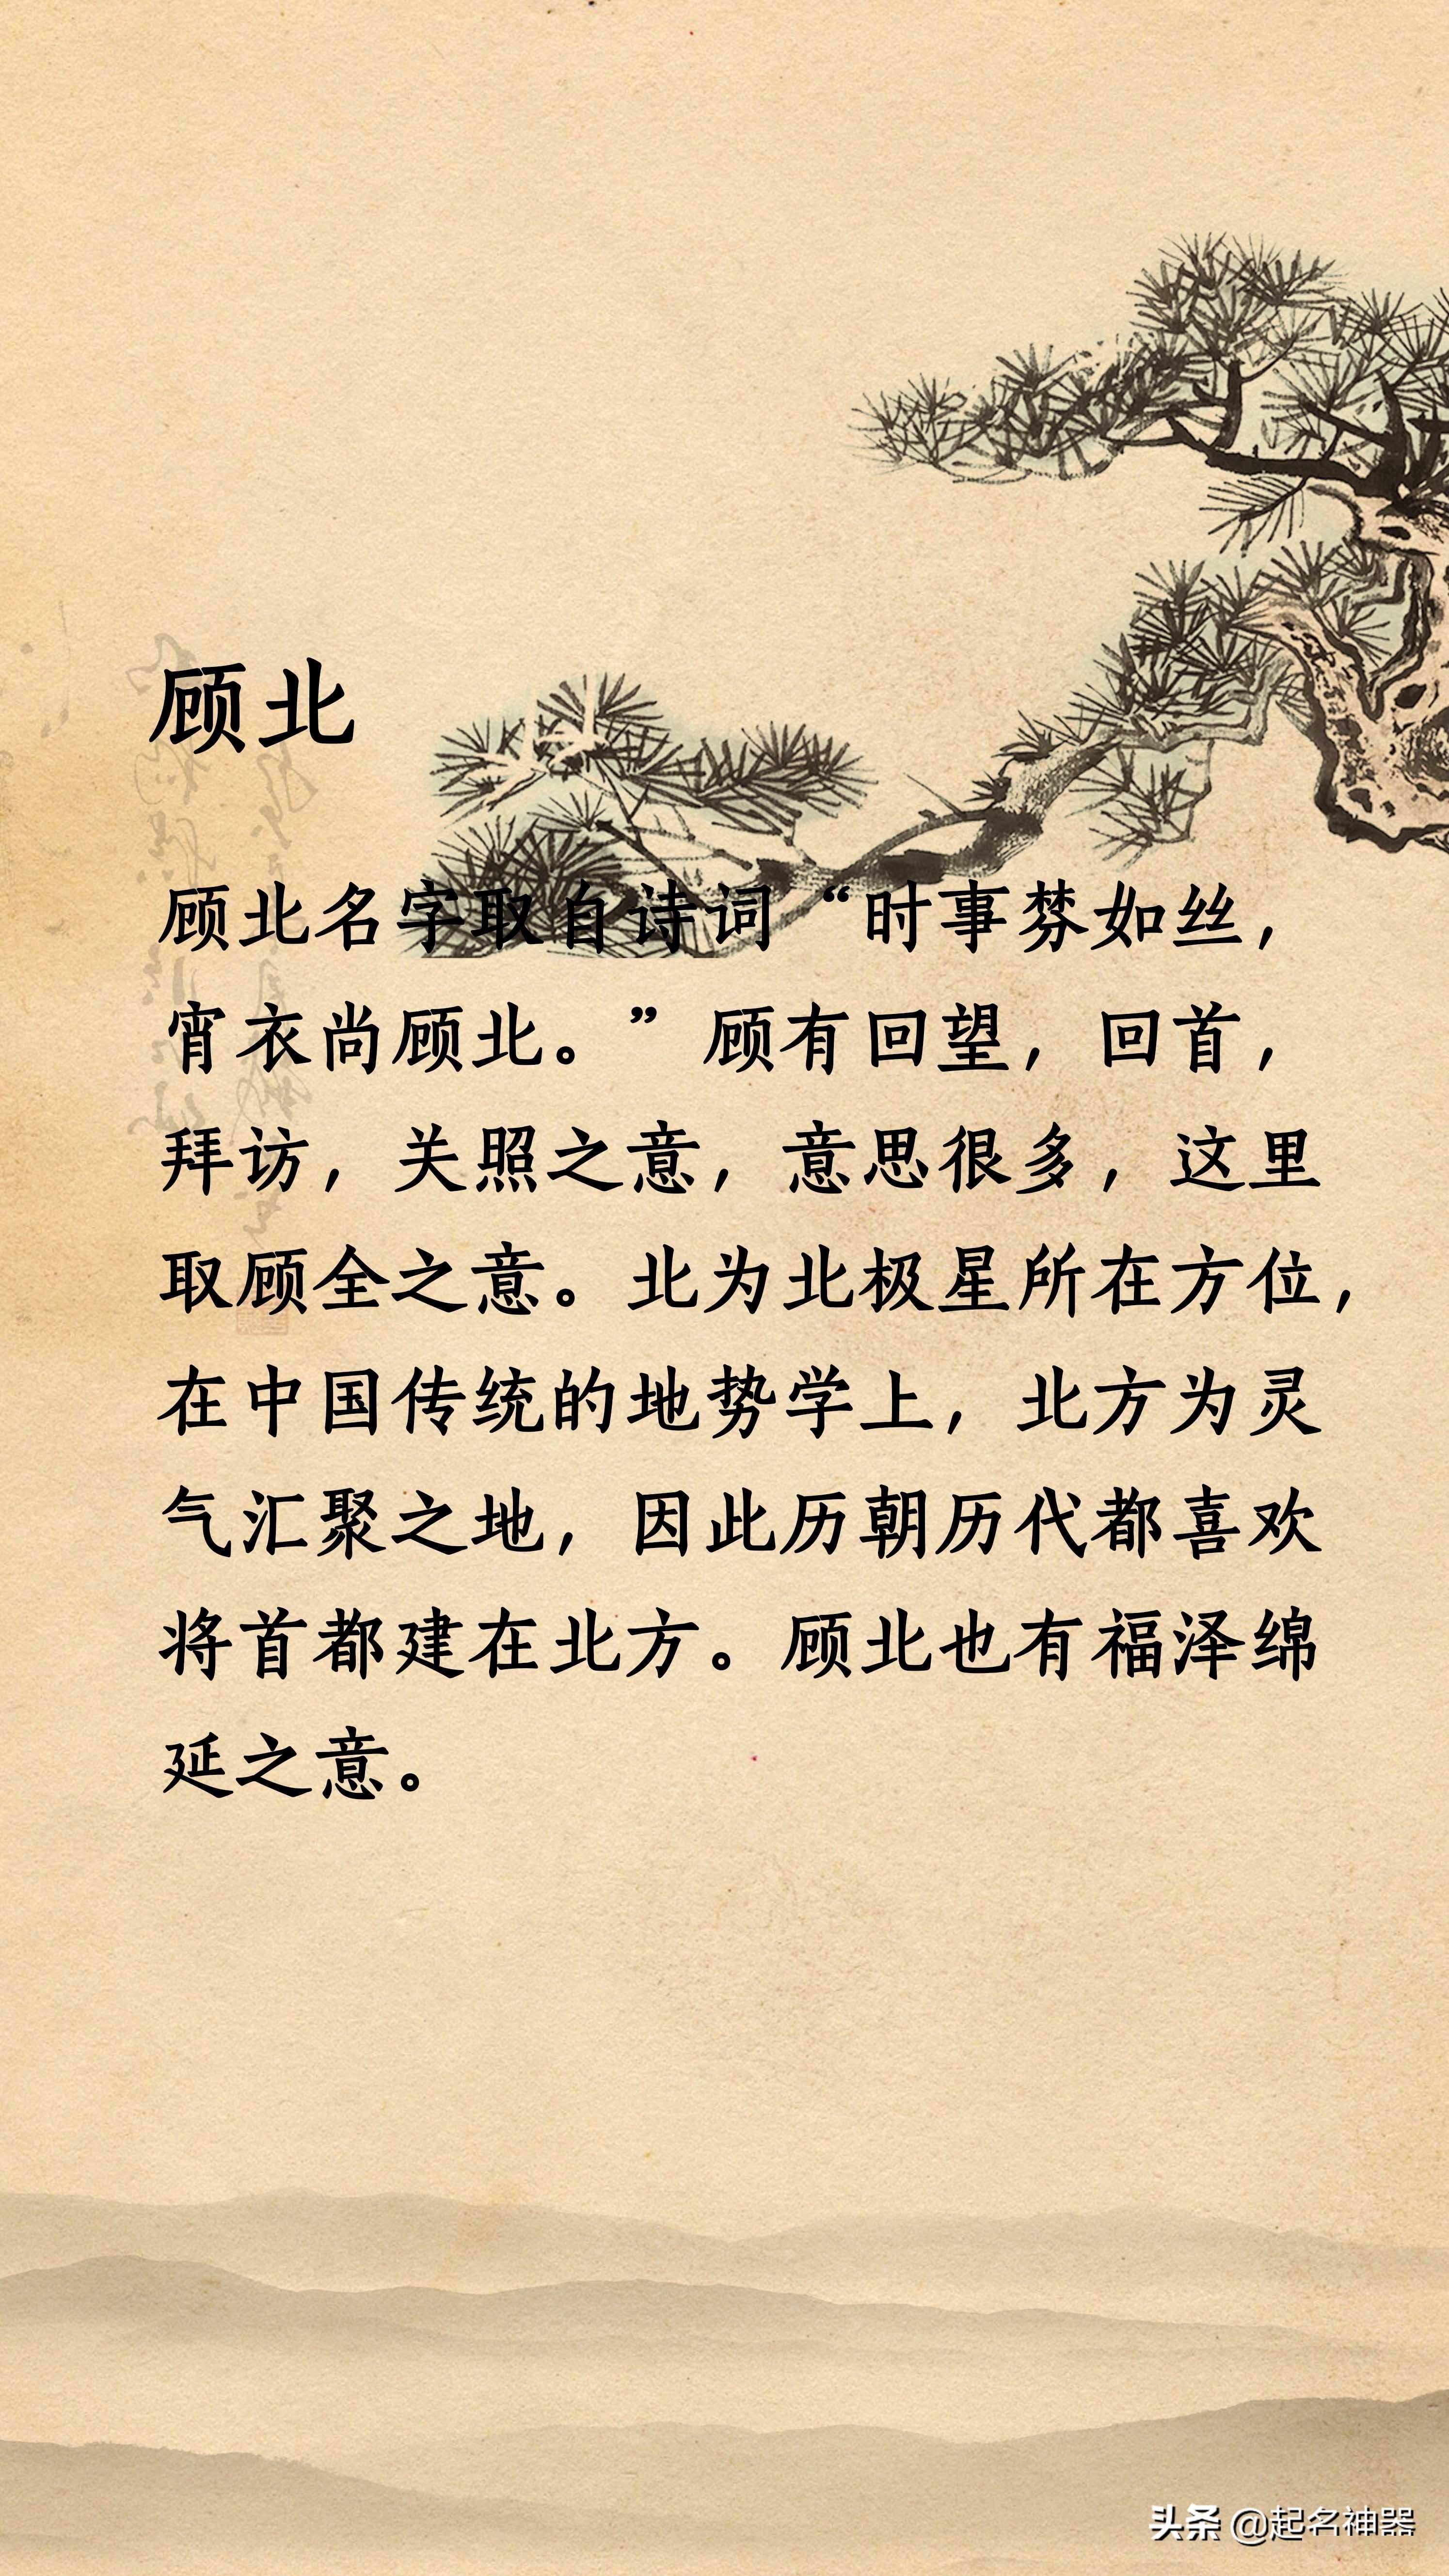 顾北
顾北名字取自诗词“时事棼如丝，
宵衣尚顾北。”顾有回望，回首，
拜访，关照之意，意思很多，这里
取顾全之意。北为北极星所在方位，
在中国传统的地势学上，北方为灵
气汇聚之地，因此历朝历代都喜欢
将首都建在北方。顾北也有福泽绵
延之意。
头条 @起名神器